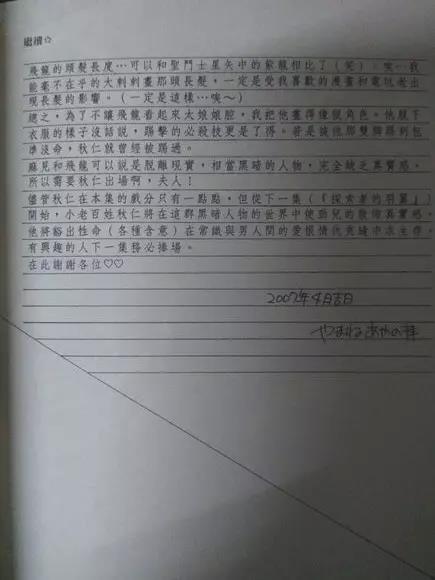 繼續☆
飛龍的頭髮長度…可以和聖鬥士星矢中的紫龍相比了(笑)。唉…我
能毫不在乎的大剌剌畫那頭長髮，一定是受我喜歡的漫畫和電玩老出
現長髮的影響。(一定是這樣…唉～)
總之，為了不讓飛龍看起來太娘娘腔，我把他畫得像狠角色。他脫下
衣服的樣子沒話說，踢擊的必殺技更是了得。若是被他那雙腳踢到包
準沒命，秋仁就曾經被踢過。
麻見和飛龍可以說是脫離現實，相當黑暗的人物，完全缺乏真實感。
所以需要秋仁出場啊，夫人！
儘管秋仁在本集的戲分只有一點點，但從下一集(『探索者的羽翼』)
開始，小老百姓秋仁將在這群黑暗人物的世界中使勁兒的散佈真實感。
他將豁出性命(各種含意)在常識與男人間的愛恨情仇夾縫中求生存，
有興趣的人下一集務必捧場。
在此謝謝各位♡♡
2007年4月吉日
やまねあやの拝